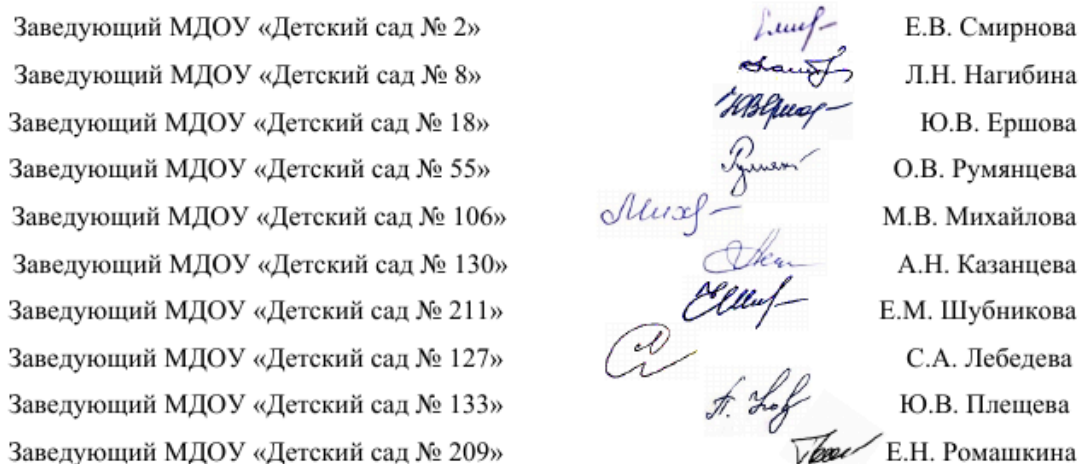 Заведующий МДОУ «Детский сад № 2» Е.В. Смирнова
Заведующий МДОУ «Детский сад № 8» Л.Н. Нагибина
Заведующий МДОУ «Детский сад № 18» Ю.В. Ершова
Заведующий МДОУ «Детский сад № 55» О.В. Румянцева
Заведующий МДОУ «Детский сад № 106» М.В. Михайлова
Заведующий МДОУ «Детский сад № 130» А.Н. Казанцева
Заведующий МДОУ «Детский сад № 211» Е.М. Шубникова
Заведующий МДОУ «Детский сад № 127» С.А. Лебедева
Заведующий МДОУ «Детский сад № 133» Ю.В. Плещева
Заведующий МДОУ «Детский сад № 209» Е.Н. Ромашкина